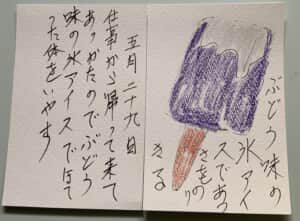 ぶどう味の
氷アイ
スであつ
さをのり
きる
五月二十九日
仕事から帰って来て
あつかたのでぶどう
味の氷アイスでほて
った体をいやす